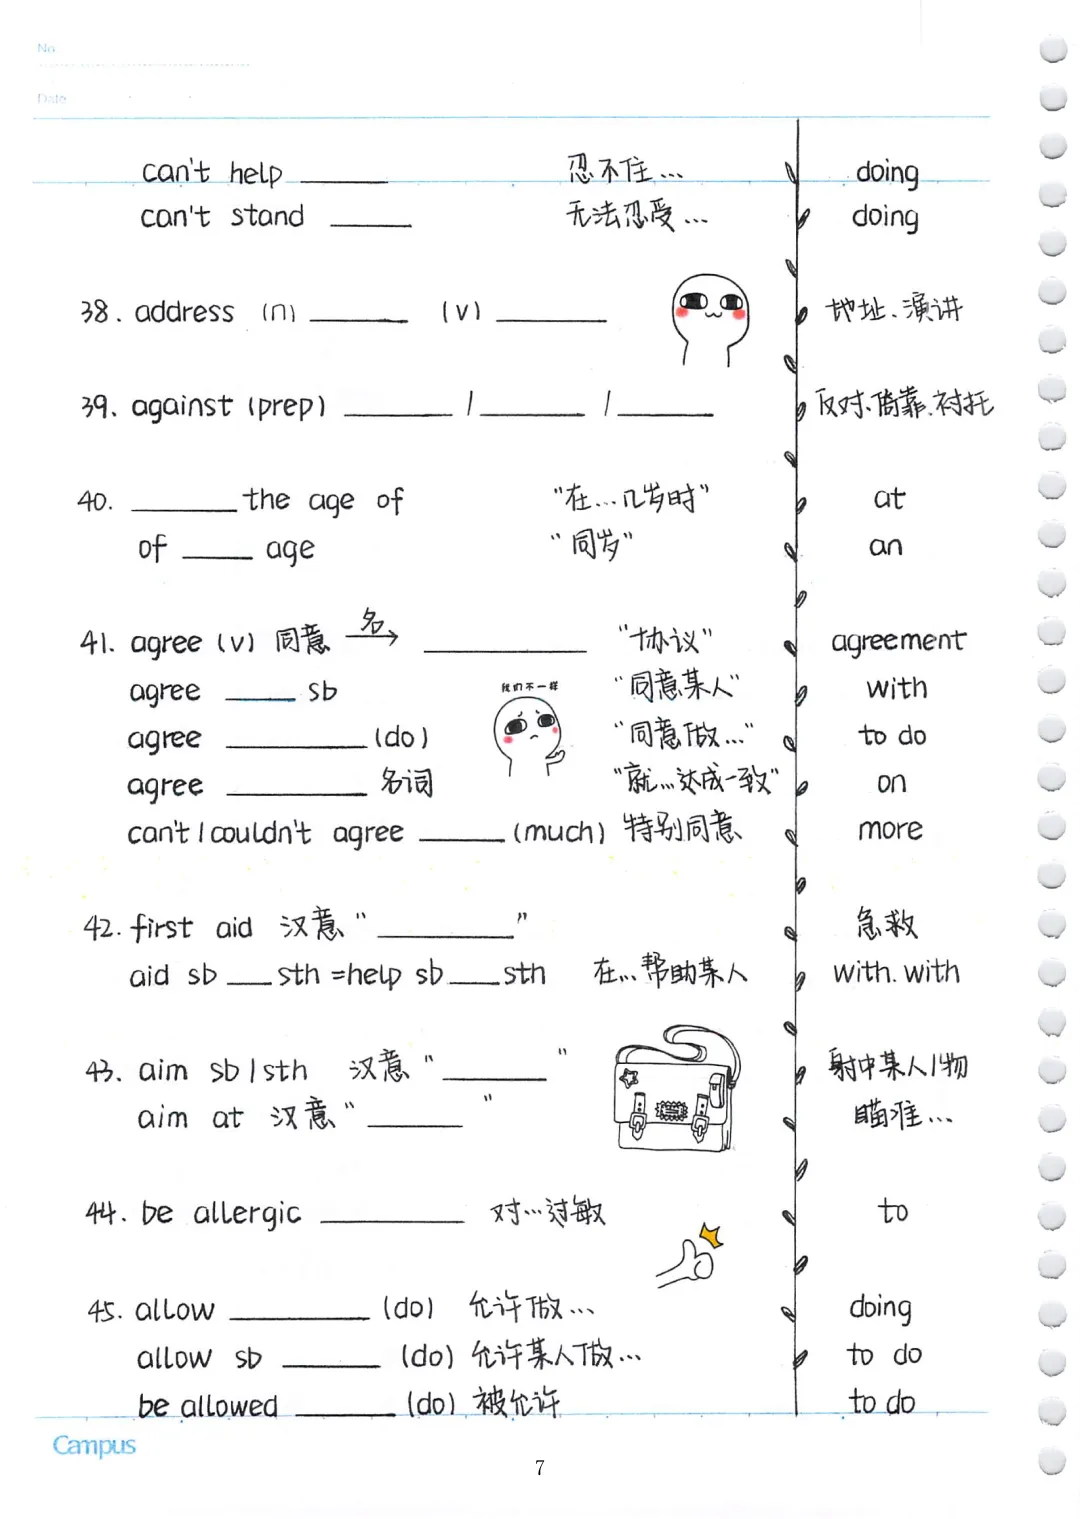 No.
Date
can't help ______ 忍不住… doing
can't stand ______ 无法忍受… doing
38. address (n) ______ (v) ______ 地址、演讲
39. against (prep) ______ / ______ / ______ 反对、倚靠、衬托
40. ______ the age of "在…几岁时" at
of ______ age "同岁" an
41. agree (v) 同意 名→ ______ "协议" agreement
agree ______ sb "同意某人" with
我们不一样
agree ______ (do) "同意做…" to do
agree ______ 名词 "就…达成一致" on
can't / couldn't agree ______ (much) 特别同意 more
42. first aid 汉意"______" 急救
aid sb ___ sth =help sb ___ sth 在…帮助某人 with. with
43. aim sb / sth 汉意"______" 射中某人/物
aim at 汉意"______" 瞄准…
44. be allergic ______ 对…过敏 to
45. allow ______ (do) 允许做… doing
allow sb ______ (do) 允许某人做… to do
be allowed ______ (do) 被允许 to do
Campus
7